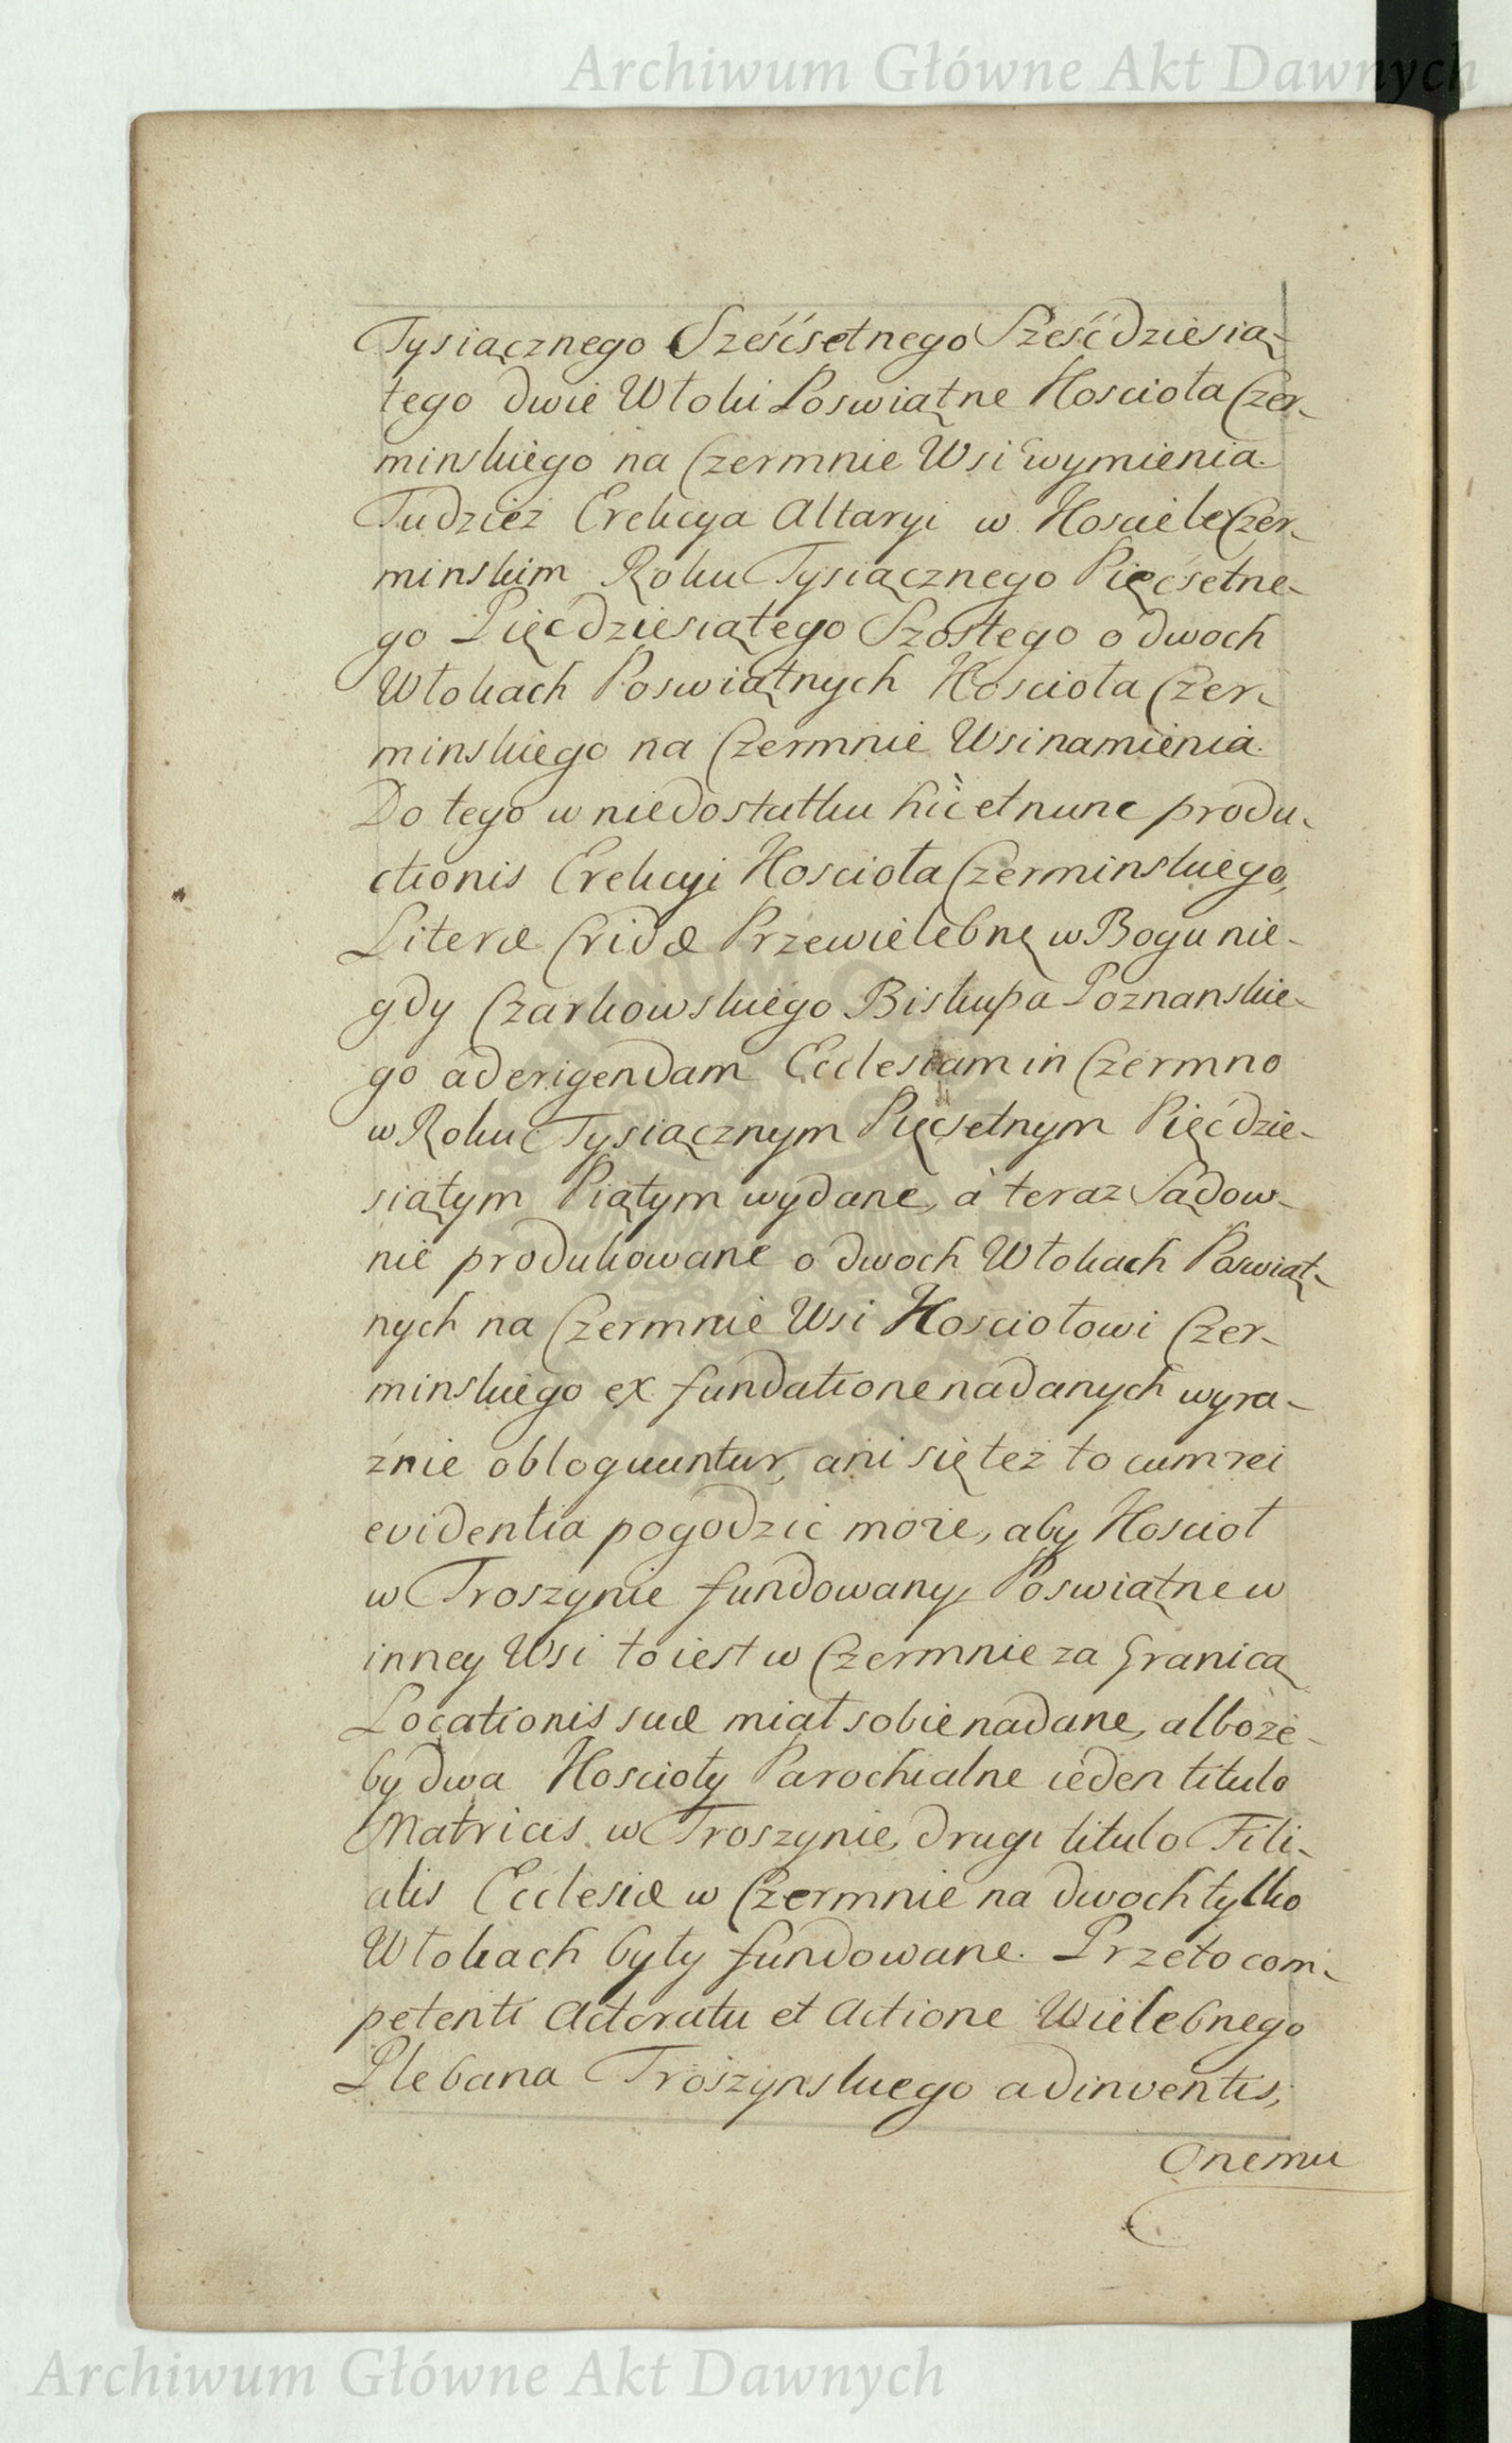 Archiwum Główne Akt Dawnych
Tysiącznego Sześćsetnego Sześćdziesią-
tego dwie Włoki Poswiątne Koscioła Czer-
minskiego na Czermnie Wsi wymienia.
Tudzież Erekcya Altaryi w Kosciele Czer-
minskim Roku Tysiącznego Pięćsetne-
go Pięćdziesiątego Szostego o dwoch
Włokach Poswiątnych Kosciola Czer-
minskiego na Czermnie Wsi namienia.
Do tego w niedostatku hic et nunc produ-
ctionis Erekcyi Kosciola Czerminskiego,
Literæ Cridæ Przewielebnę w Bogu nie-
gdy Czarkowskiego Biskupa Poznanskie-
go ad erigendam Ecclesiam in Czermno
w Roku Tysiącznym Pięcsetnym Pięćdzie-
siątym Piątym wydane, à teraz Sądow-
nie produkowane o dwoch Włokach Poswiąt-
nych na Czermnie Wsi Kosciołowi Czer-
minskiego ex fundatione nadanych wyra-
źnie obloquuntur, ani się też to cum rei
evidentia pogodzić może, aby Kosciol
w Troszynie fundowany, Poswiątne w
inney Wsi to iest w Czermnie za Granicą
Locationis suæ miał sobie nadane, albo że-
by dwa Koscioły Parochialne ieden titulo
Matricis w Troszynie, drugi titulo Fili-
alis Ecclesiæ w Czermnie na dwoch tylko
Włokach były fundowane. Przeto com-
petenti Actoratu et Actione Wielebnego
Plebana Troszynskiego adinventis,
Onemu
Archiwum Główne Akt Dawnych